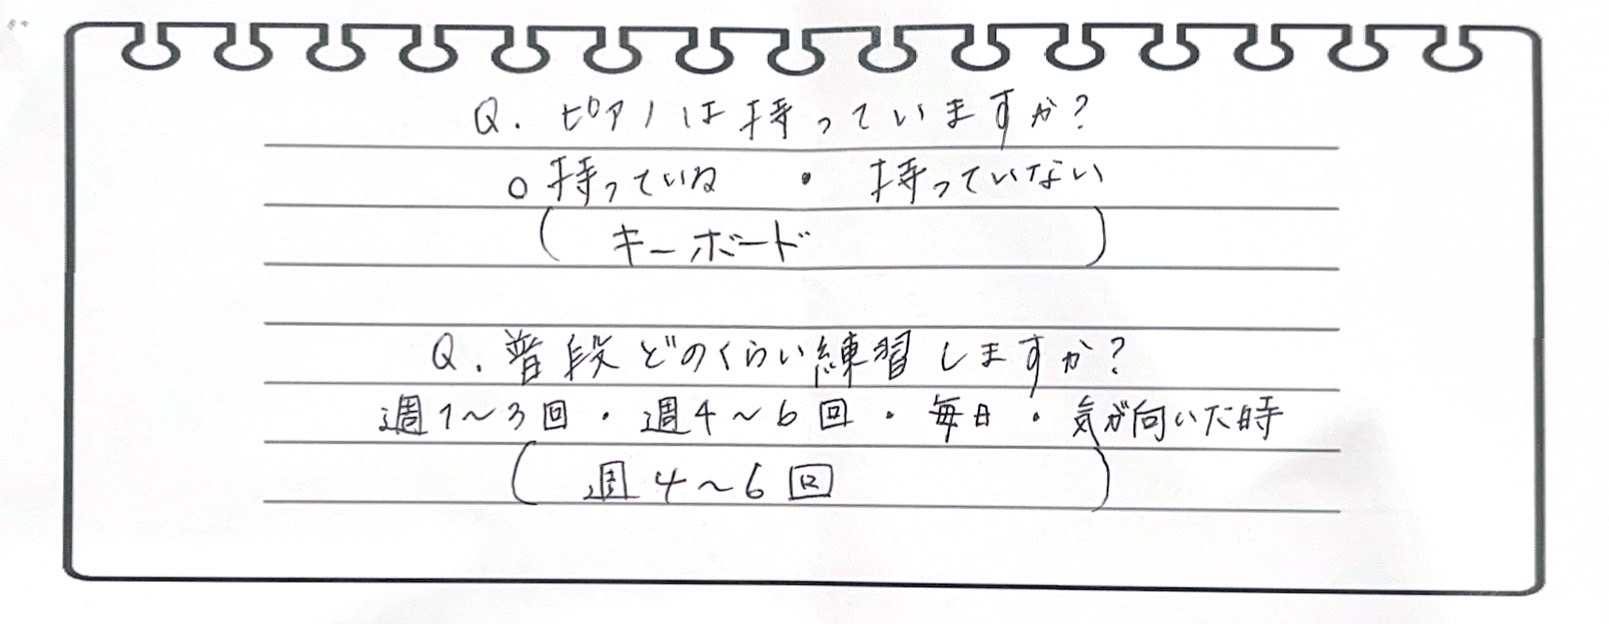 Q. ピアノは持っていますか?
○持っている ・ 持っていない
( キーボード )
Q. 普段どのくらい練習しますか?
週1～3回 ・ 週4～6回 ・ 毎日 ・ 気が向いた時
( 週4～6回 )